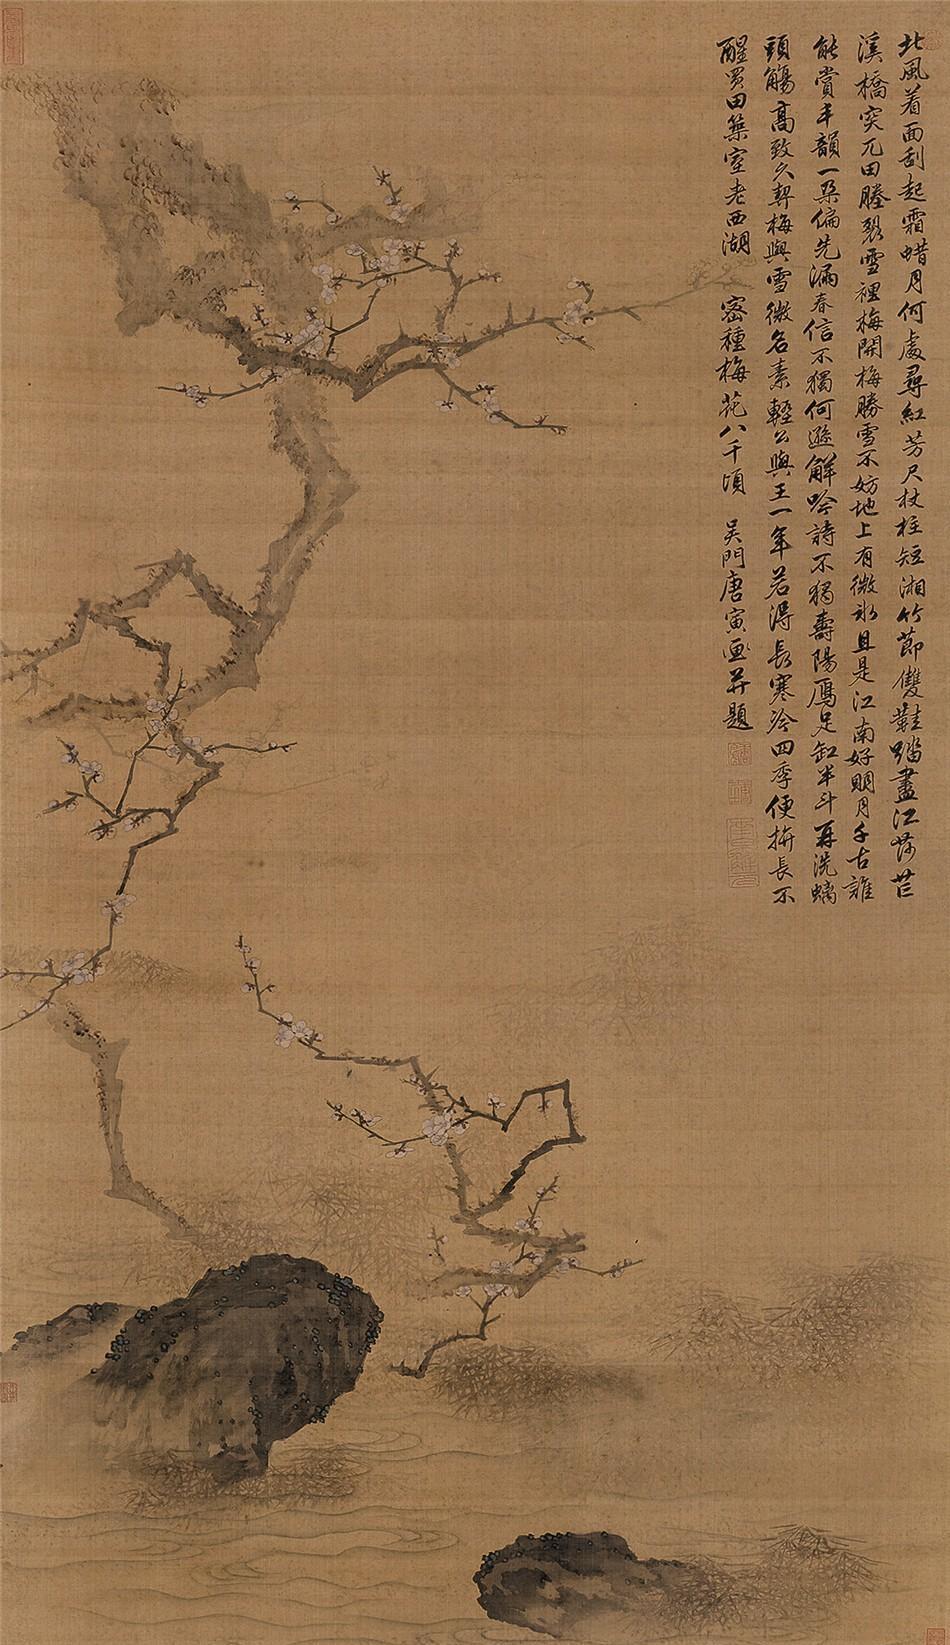 北風着面刮起霜蜡月何處尋紅芳尺杖柱短湘竹節雙鞋踏盡江
溪橋突兀田塍裂雪裡梅開梅勝雪不妨地上有微氷且是江南好明月千古誰
能賞丰韻一朶偏先漏春信不獨何遜解吟詩不獨壽陽
缸半斗再洗螭
頭觴高致久契梅與雪微名素輕公與王一年若得長寒冷四季便拚長不
醒買田築室老西湖 密種梅花八千頃 吴門唐寅画并題